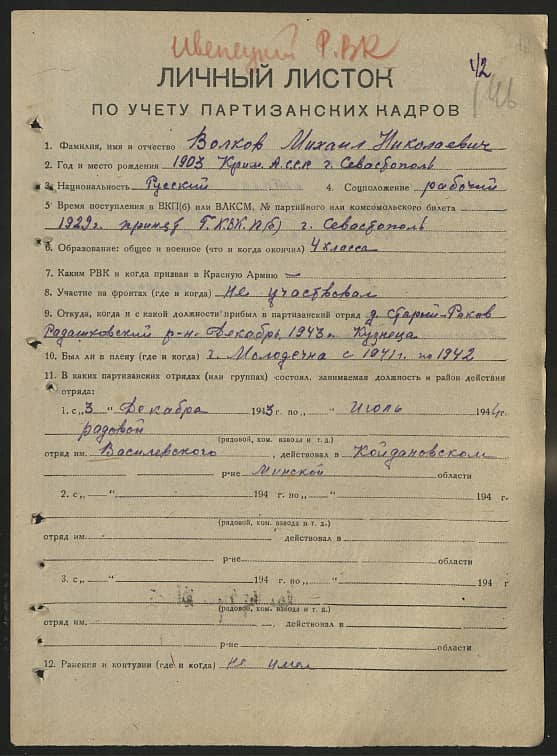 Ивенецкий РВК
1/2
146
ЛИЧНЫЙ ЛИСТОК
ПО УЧЕТУ ПАРТИЗАНСКИХ КАДРОВ
1. Фамилия, имя и отчество Волков Михаил Николаевич
2. Год и место рождения 1903 Крим. АССР г. Севастополь
3. Национальность Русский 4. Соцположение рабочий
5 Время поступления в ВКП(б) или ВЛКСМ, № партийного или комсомольского билета
1929г. принят Г.К.ВКП(б) г. Севастополь
6. Образование: общее и военное (что и когда окончил) 4 класса
7. Каким РВК и когда призван в Красную Армию —
8. Участие на фронтах (где и когда) не участвовал
9. Откуда, когда и с какой должности прибыл в партизанский отряд д. Старый-Раков
Радашковский р-н. Декабрь 1943г. Кузнеца
10. Был ли в плену (где и когда) г. Молодечна с 1941г. по 1942
11. В каких партизанских отрядах (или группах) состоял, занимаемая должность и район действия
отряда:
1. с „3 " Декабра 1943 г. по „ " Июль 1944г.
рядовой
(рядовой, ком. взвода и т. д.)
отряд им. Василевского, действовал в Койдановском
р-не Минской области
2. с „— " 194 г. по „ " 194 г.
(рядовой, ком. взвода и т. д.)
отряд им. действовал в
р-не области
3. с „ " 194 г. по „ " 194 г
(рядовой, ком. взвода и т. д.)
отряд им. , действовал в
р-не области
12. Ранения и контузии (где и когда) не имел